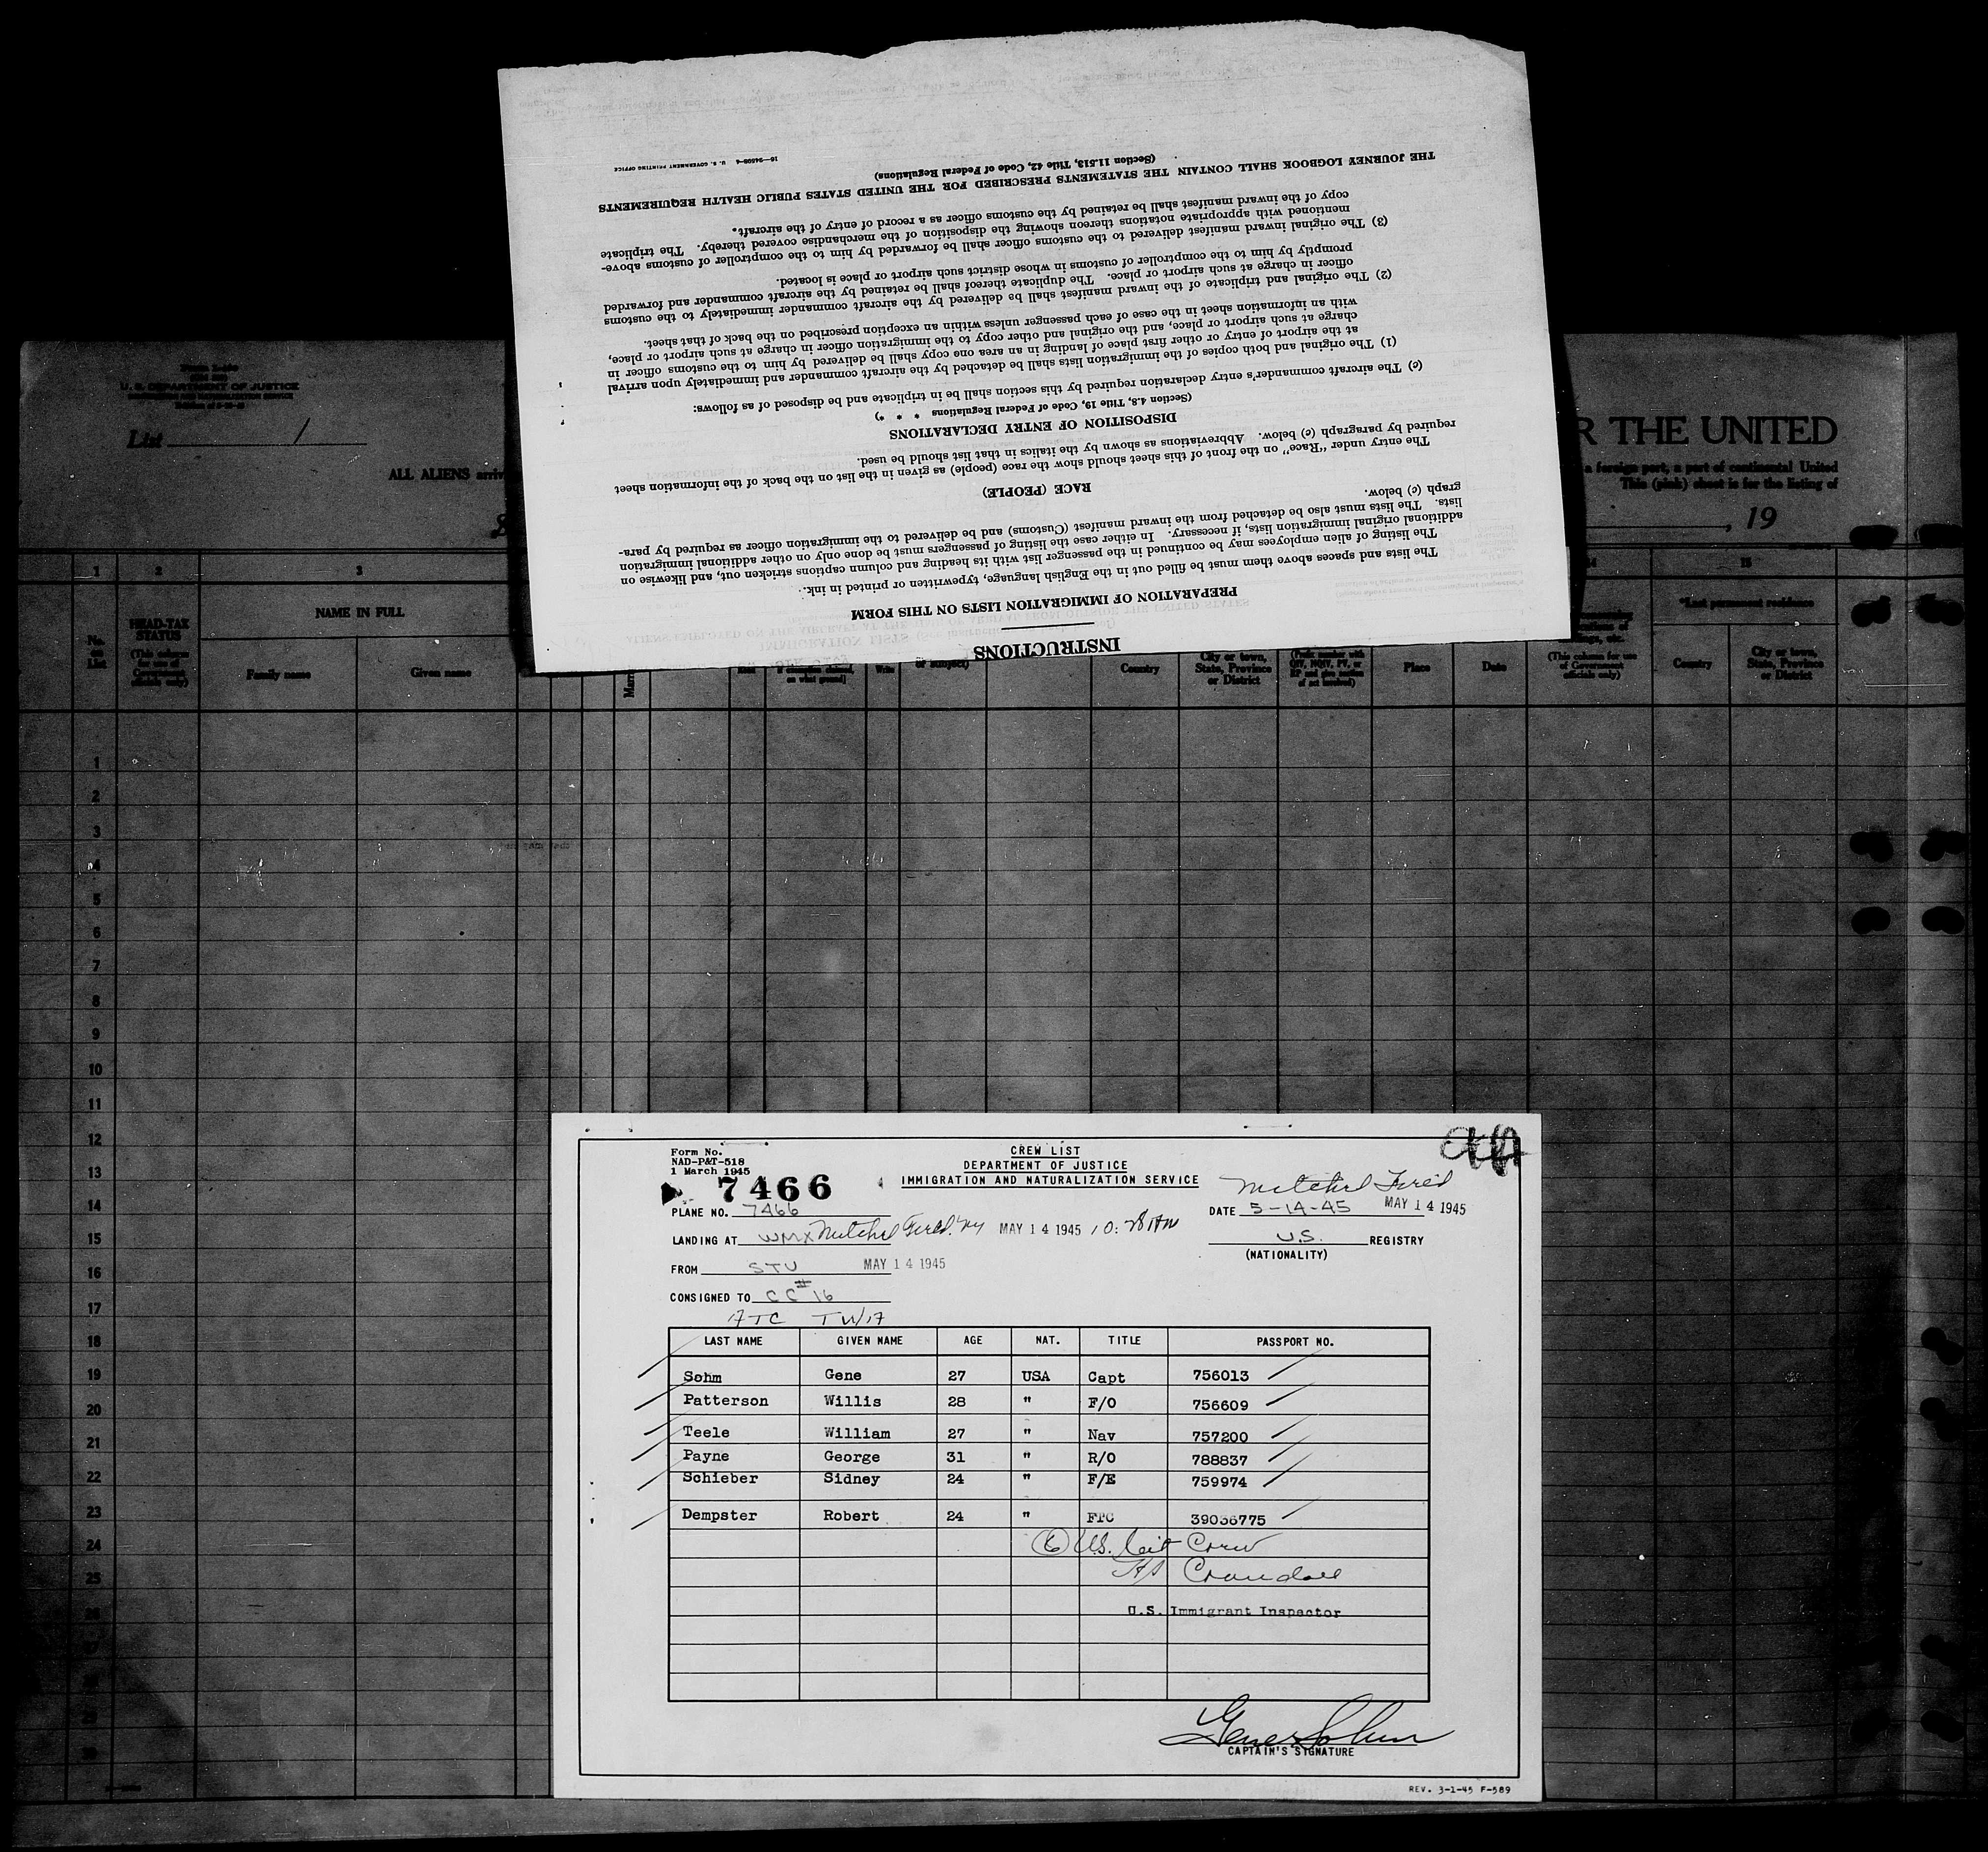 INSTRUCTIONS
PREPARATION OF IMMIGRATION LISTS ON THIS FORM
The lists and spaces above them must be filled out in the English language, typewritten or printed in ink.
The listing of alien employees may be continued in the passenger list with its heading and column captions stricken out, and likewise on
additional original immigration lists, if necessary. In either case the listing of passengers must be done only on other additional immigration
lists. The lists must also be detached from the inward manifest (Customs) and be delivered to the immigration officer as required by para-
graph (c) below.
RACE (PEOPLE)
The entry under "Race" on the front of this sheet should show the race (people) as given in the list on the back of the information sheet
required by paragraph (c) below. Abbreviations as shown by the italics in that list should be used.
DISPOSITION OF ENTRY DECLARATIONS
(Section 4.8, Title 19, Code of Federal Regulations * * *)
(c) The aircraft commander's entry declaration required by this section shall be in triplicate and be disposed of as follows:
(1) The original and both copies of the immigration lists shall be detached by the aircraft commander and immediately upon arrival
at the airport of entry or other first place of landing in an area one copy shall be delivered by him to the customs officer in
charge at such airport or place, and the original and other copy to the immigration officer in charge at such airport or place,
with an information sheet in the case of each passenger unless within an exception prescribed on the back of that sheet.
(2) The original and triplicate of the inward manifest shall be delivered by the aircraft commander immediately to the customs
officer in charge at such airport or place. The duplicate thereof shall be retained by the aircraft commander and forwarded
promptly by him to the comptroller of customs in whose district such airport or place is located.
(3) The original inward manifest delivered to the customs officer shall be forwarded by him to the comptroller of customs above-
mentioned with appropriate notations thereon showing the disposition of the merchandise covered thereby. The triplicate
copy of the inward manifest shall be retained by the customs officer as a record of entry of the aircraft.
THE JOURNEY LOGBOOK SHALL CONTAIN THE STATEMENTS PRESCRIBED FOR THE UNITED STATES PUBLIC HEALTH REQUIREMENTS
(Section 11.513, Title 42, Code of Federal Regulations)
U. S. GOVERNMENT PRINTING OFFICE
U. S. DEPARTMENT OF JUSTICE
List 1
R THE UNITED
ALL ALIENS arriv
a foreign port, a port of continental United
This (pink) sheet is for the listing of
, 19
1 2 3 15
No. on List
HEAD-TAX STATUS
(This column for use of Government officials only)
NAME IN FULL
Family name
Given name
Country
City or town, State, Province or District
Place
Date
(This column for use of Government officials only)
*Last permanent residence
Country
City or town, State, Province or District
1
2
3
4
5
6
7
8
9
10
11
12
13
14
15
16
17
18
19
20
21
22
23
24
25
Form No.
NAD-P&T-518
1 March 1945
CREW LIST
DEPARTMENT OF JUSTICE
IMMIGRATION AND NATURALIZATION SERVICE
7466
Mitchel Field
PLANE NO. 7466
DATE 5-14-45 MAY 14 1945
LANDING AT WMX Mitchel Field. NY MAY 14 1945 10:28 AM
U.S. REGISTRY
(NATIONALITY)
FROM STU MAY 14 1945
CONSIGNED TO CC #16
ATC TW/A
LAST NAME GIVEN NAME AGE NAT. TITLE PASSPORT NO.
Sohm Gene 27 USA Capt 756013
Patterson Willis 28 " F/O 756609
Teele William 27 " Nav 757200
Payne George 31 " R/O 788837
Schieber Sidney 24 " F/E 759974
Dempster Robert 24 " FTC 39036775
6 U.S. Cit Crew
Crandall
U.S. Immigrant Inspector
Gene Sohm
CAPTAIN'S SIGNATURE
REV. 3-1-45 F-589